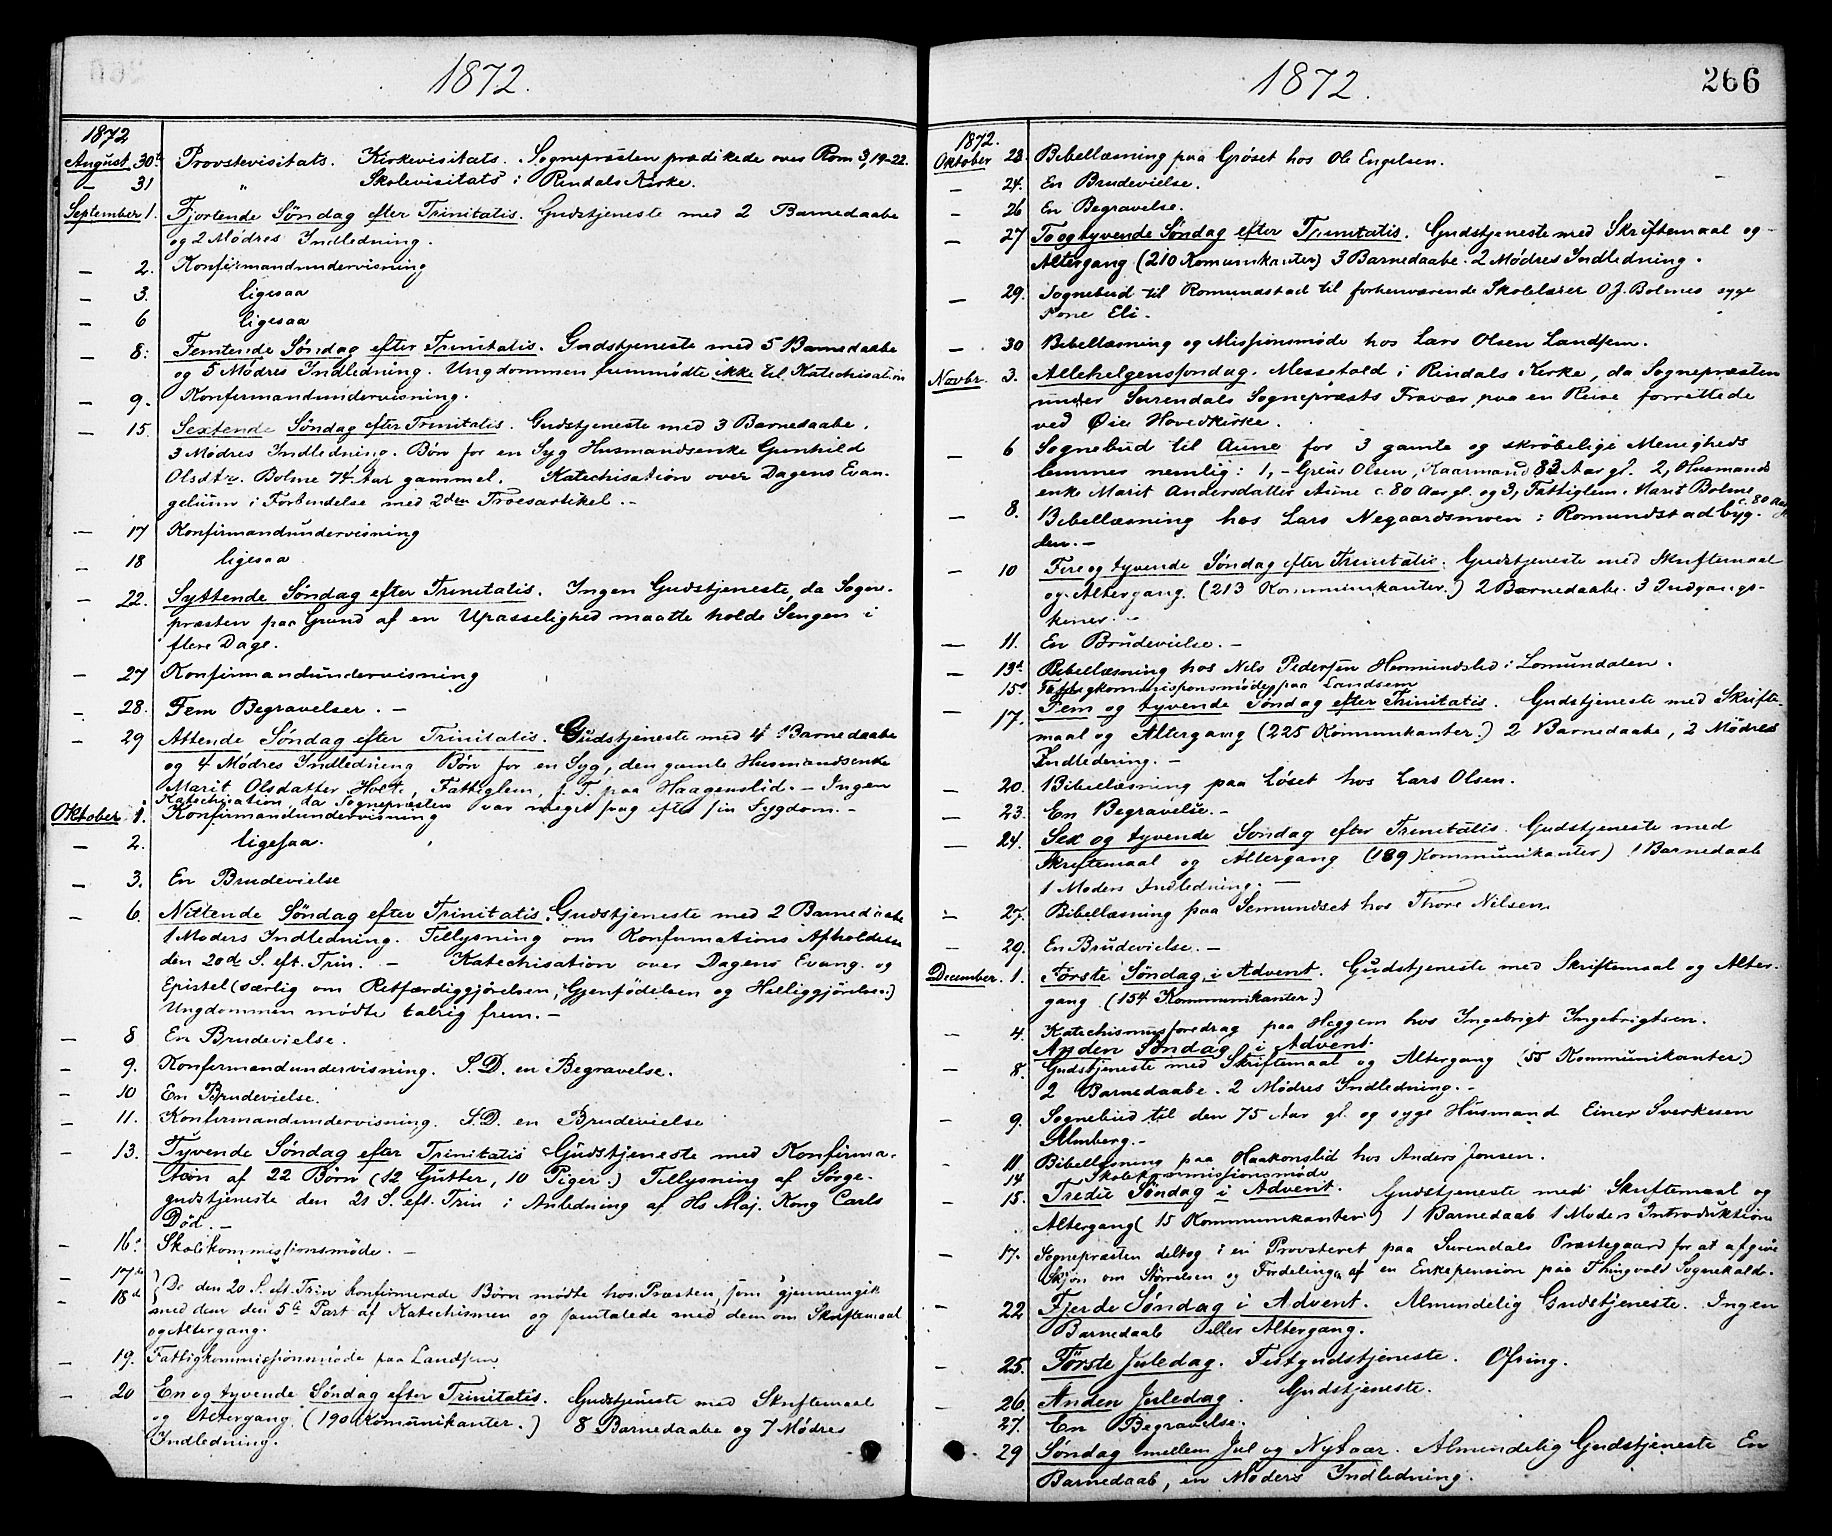 1872.
1872
August 30te Provstevisitats. Kirkevisitats. Sognepræsten prædikede over Rom 3, 19-22.
— 31 " Skolevisitats i Rindals Kirke.
September 1. Fjortende Søndag efter Trinitatis. Gudstjeneste med 2 Barnedaabe
og 2 Mødres Indledning.
— 2. Konfirmandundervisning
— 3. ligesaa
— 6 ligesaa
— 8. Femtende Søndag efter Trinitatis. Gudstjeneste med 5 Barnedaabe
og 5 Mødres Indledning. Ungdommen fremmødte ikke til Katechisation
— 9. Konfirmandundervisning.
— 15. Sextende Søndag efter Trinitatis. Gudstjeneste med 3 Barnedaabe.
3 Mødres Indledning. Bøn for en Syg Husmandsenke Gunhild
Olsdtr. Bolme 74 Aar gammel. Katechisation over Dagens Evan-
gelium i Forbindelse med 2den Troesartikel. —
— 17 Konfirmandundervisning
— 18 ligesaa
— 22. Syttende Søndag efter Trinitatis. Ingen Gudstjeneste, da Sogne-
præsten paa Grund af en Upasselighed maatte holde Sengen i
flere Dage.
— 27 Konfirmandundervisning
— 28. Fem Begravelser. —
— 29 Attende Søndag efter Trinitatis. Gudstjeneste med 4 Barnedaabe
og 4 Mødres Indledning Bøn for en Syg, den gamle Husmandsenke
Marit Olsdatter Holt, Fattiglem, f. T. paa Haagenslid. — Ingen
Katechisation, da Sognepræsten var meget svag efter sin Sygdom. —
Oktober 1. Konfirmandundervisning
— 2. ligesaa.
— 3. En Brudevielse
— 6. Nittende Søndag efter Trinitatis. Gudstjeneste med 2 Barnedaabe
1 Moders Indledning. Tillysning om Konfirmations Afholdelse
den 20de S. eft. Trin. — Katechisation over Dagens Evang. og
Epistel (særlig om Retfærdiggjørelsen, Gjenfødelsen og Helliggjørelsen.)
Ungdommen mødte talrig frem. —
— 8 En Brudevielse.
— 9. Konfirmandundervisning. S.D. en Begravelse.
— 10 En Brudevielse.
— 11. Konfirmandundervisning. S.D. en Brudevielse
— 13. Tyvende Søndag efter Trinitatis Gudstjeneste med Konfirma-
tion af 22 Børn (12 Gutter, 10 Piger.) Tillysning af Sørge-
gudstjeneste den 21 S. eft. Trin i Anledning af Hs Maj. Kong Carls
Død. —
— 16. Skolekommissionsmøde. —
— 17de
— 18d } De den 20 S. eft. Trin konfirmerede Børn mødte hos Præsten, som gjennemgik
med dem den 5te Part af Katechismen og samtalede med dem om Skriftemaal
og Altergang.
— 19. Fattigkommissionsmøde paa Landsem
— 20 En og tyvende Søndag efter Trinitatis. Gudstjeneste med Skriftemaal
og Altergang. (190 Komunikanter.) 8 Barnedaabe og 7 Mødres
Indledning.
1872.
266
1872.
Oktober 23. Bibellæsning paa Grøset hos Ole Engelsen.
— 24. En Brudevielse.
— 26 En Begravelse.
— 27 To og tyvende Søndag efter Trinitatis. Gudstjeneste med Skriftemaal og
Altergang (210 Komunikanter) 3 Barnedaabe. 2 Mødres Indledning.
— 29. Sognebud til Romundstad til forhenværende Skolelærer O. J. Bolmes syge
Kone Eli.
— 30 Bibellæsning og Missionsmøde hos Lars Olsen Landsem.
Novbr. 3. Allehelgenssondag. Messefald i Rindals Kirke, da Sognepræsten
under Surendals Sognepræsts Fravær paa en Reise forrettede
ved Øie Hovedkirke.
— 6 Sognebud til Aune for 3 gamle og skrøbelige Menigheds
lemmer nemlig: 1, - Greus Olsen, Kaarmand 83 Aar gl. 2, Husmands
enke Marit Andersdatter Aune c. 80 Aar gl. og 3, Fattiglem. Marit Bolme c. 80 Aar gl
— 8. Bibellæsning hos Lars Negaardsmoen i Romundstadbyg-
den. —
— 10 Fire og tyvende Søndag efter Trinitatis. Gudstjeneste med Skriftemaal
og Altergang. (213 Kommunikanter.) 2 Barnedaabe. 3 Indgangs-
koner. —
— 11. En Brudevielse. —
— 13d. Bibellæsning hos Nils Pedersen Hermundslid i Lomundalen.
15d Fattigkommissionsmøde paa Landsem
— 17. Fem og tyvende Søndag efter Trinitatis. Gudstjeneste med Skrifte-
maal og Altergang (225 Kommunikanter.) 2 Barnedaabe, 2 Mødres
Indledning. —
— 20. Bibellæsning paa Løset hos Lars Olsen.
— 23. En Begravelse. —
— 24. Sex og tyvende Søndag efter Trinitatis. Gudstjeneste med
Skriftemaal og Altergang (189 Kommunikanter) 1 Barnedaab
1 Moders Indledning. —
— 27. Bibellæsning paa Semundset hos Thore Nilsen
— 29. En Brudevielse. —
December. 1. Første Søndag i Advent. Gudstjeneste med Skriftemaal og Alter-
gang. (154 Kommunikanter.)
— 4. Katechismusforedrag paa Heggem hos Ingebrigt Ingebrigtsen.
Anden Søndag i Advent.
— 8. Gudstjeneste med Skriftemaal og Altergang (55 Kommunikanter.)
2 Barnedaabe. 2 Mødres Indledning. —
— 9. Sognebud til den 75 Aar gl. og syge Husmand Einer Sverkesen
Almberg. —
— 11 Bibellæsning paa Haakonslid hos Anders Jonsen.
14 Skolekommissionsmøde
— 15. Tredie Søndag i Advent. Gudstjeneste med Skriftemaal og
Altergang (15 Kommunikanter) 1 Barnedaab 1 Moders Introduktion
— 17. Sognepræsten deltog i en Provsteret paa Surendals Præstegaard for at afgive
Skjøn om Størrelsen og Fordelingen af en Enkepension paa Thingvold Sognekald.
— 22. Fjerde Søndag i Advent. Almindelig Gudstjeneste. Ingen
Barnedaab eller Altergang.
— 25. Første Juledag. Festgudstjeneste. Ofring.
— 26. Anden Juledag. Gudstjeneste.
— 27. En Begravelse.
— 29 Søndag mellem Jul og Nytaar. Almindelig Gudstjeneste En
Barnedaab, en Moders Indledning.